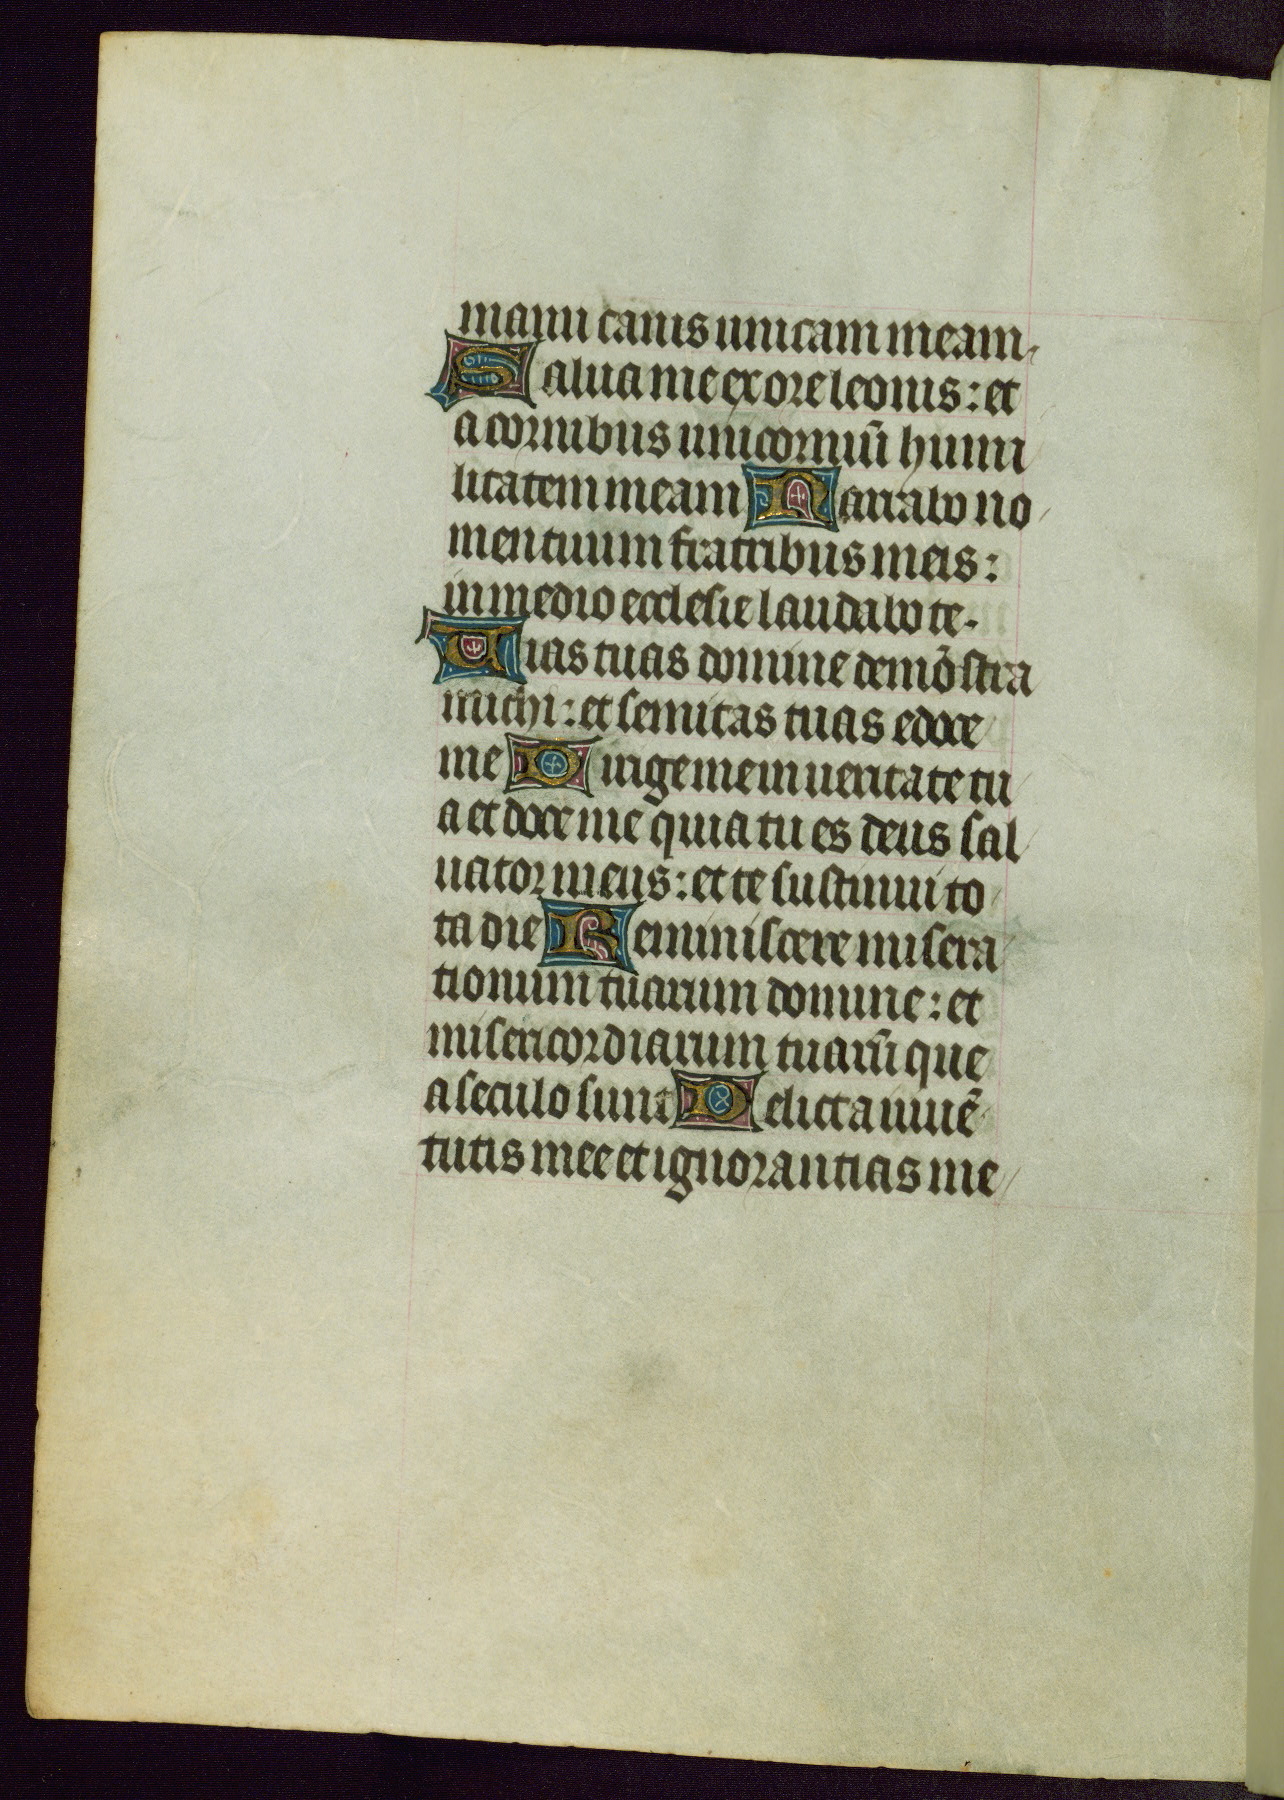 manu canis unicam meam.
Salua me ex ore leonis: et
a cornibus unicorniū humi
litatem meam Narrabo no
men tuum fratribus meis:
in medio ecclesie laudabo te.
Uias tuas domine demōstra
michi: et semitas tuas edoce
me Dirige me in ueritate tu
a et doce me quia tu es deus sal
uator meus: et te sustinui to
ta die Reminiscere misera
tionum tuarum domine: et
misericordiarum tuarū que
a seculo sunt Delicta iuuē
tutis mee et ignorantias me